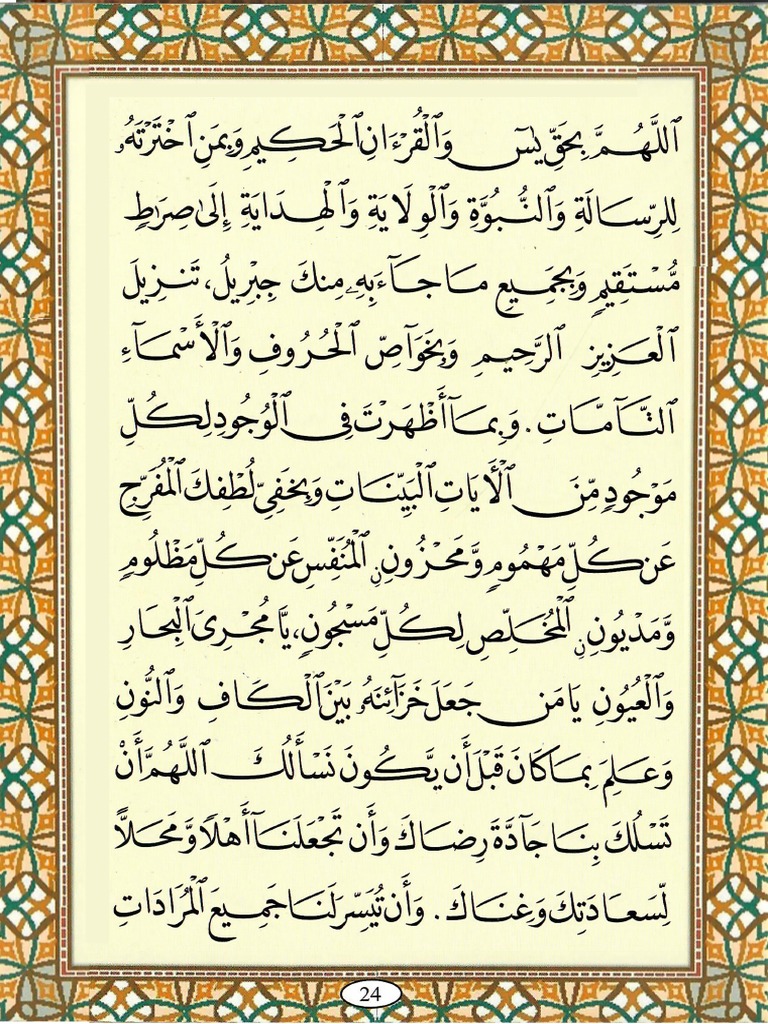 ٱللَّهُمَّ بِحَقِّ يسٓ وَٱلْقُرْءَانِ ٱلْحَكِيمِ وَبِمَنِ ٱخْتَرْتَهُۥ
لِلرِّسَالَةِ وَٱلنُّبُوَّةِ وَٱلْوِلَايَةِ وَٱلْهِدَايَةِ إِلَىٰ صِرَاطٍ
مُّسْتَقِيمٍ وَبِجَمِيعِ مَا جَآءَ بِهِۦ مِنكَ جِبْرِيلُ، تَنزِيلَ
ٱلْعَزِيزِ ٱلرَّحِيمِ وَبِخَوَآصِّ ٱلْحُرُوفِ وَٱلْأَسْمَآءِ
ٱلتَّآمَّاتِ. وَبِمَآ أَظْهَرْتَ فِى ٱلْوُجُودِ لِكُلِّ
مَوْجُودٍ مِّنَ ٱلْأَيَاتِ ٱلْبَيِّنَاتِ وَبِخَفِىِّ لُطْفِكَ ٱلْمُفَرِّجِ
عَن كُلِّ مَهْمُومٍ وَّمَحْزُونِنِ ٱلْمُنَفِّسِ عَن كُلِّ مَظْلُومٍ
وَّمَدْيُونِنِ ٱلْمُخَلِّصِ لِكُلِّ مَسْجُونٍ، يَّا مُجْرِىَ ٱلْبِحَارِ
وَٱلْعُيُونِ يَا مَن جَعَلَ خَزَآئِنَهُۥ بَيْنَ ٱلْكَافِ وَٱلنُّونِ
وَعَلِمَ بِمَا كَانَ قَبْلَ أَن يَّكُونَ نَسْأَلُكَ ٱللَّهُمَّ أَنْ
تَسْلُكَ بِنَا جَآدَّةَ رِضَاكَ وَأَن تَجْعَلَنَآ أَهْلًا وَّمَحَلًّا
لِّسَعَادَتِكَ وَغِنَاكَ. وَأَن تُيَسِّرَ لَنَا جَمِيعَ ٱلْمُرَادَاتِ
24